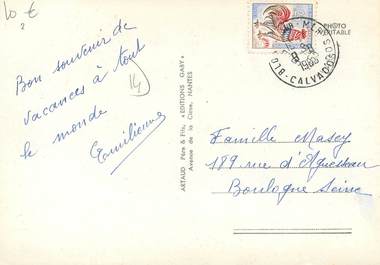 10 €
2
Bon souvenir de
vacances à tout
le monde
14
Emilienne
ARTAUD Père & Fils, « EDITIONS GABY »
Avenue de la Close, NANTES
PHOTO
VERITABLE
MER
CALVADOS
Famille Masey
189 rue d'Aguesseau
Boulogne Seine